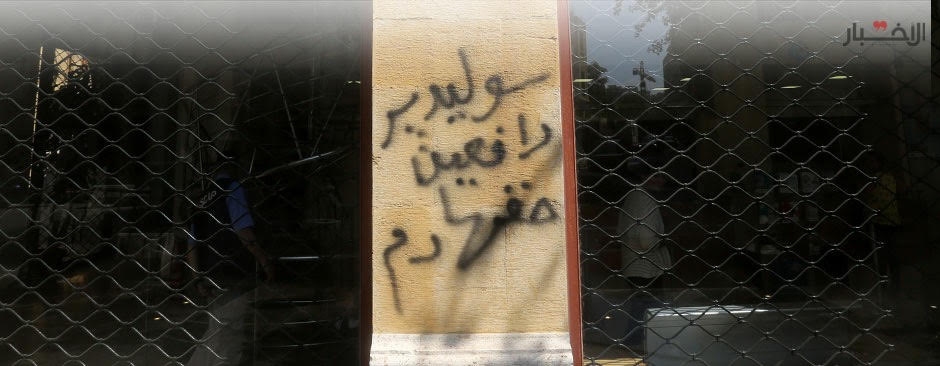 الأخبار
سوليدير
دافعين
حقها
دم